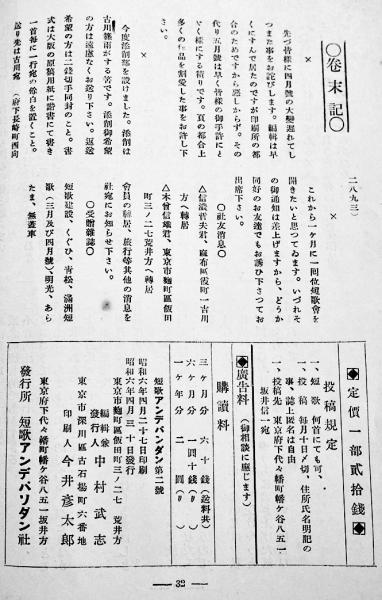 ○卷末記○
先づ皆樣に四月號の大變遲れてし
つまた事をお詫びします。編輯は早
くにすんで居たのですが印刷所の都
合のためですから惡しからず。その
代り五月號は早く皆樣の御手許にと
どく樣にする積りです。頁の都合上
多くの作品を割愛した事をお許し下
さい。
×
今度添削部を設けました。添削は
古川
がする筈です。添削御希望
の方は遠慮なくお送り下さい。返送
希望の方は二錢切手同封のこと。書
式は大版の原稿用紙に楷書にて書き
一首每に一行宛の餘白を置くこと。
送り先は古川宛（府下長崎町西向
二八九三）
×
これから一ケ月に一回位短歌會を
開きたいと思つてゐます。いづれそ
の御通知は差上げますから、どうか
同好のお友達でもお誘ひ下さつてお
出席下さい。
○社友消息○
△信濃菅夫君、麻布區霞町一古川
方へ轉居
△木曾信雄君、東京市麴町區飯田
町三ノ二七荒井方へ轉居
會員の轉居、旅行等其他の消息を
社宛にお知らせ下さい。
○受贈雜誌○
短歌建設、くぐひ、青松、滿洲短
歌（三月及び四月號）、明光、あら
たま、無蓋車
◆定價一部貳拾錢◆
投稿規定
一、短歌 何首にても可、
一、投稿 每月十日〆切、住所氏名明記の
事、誌上匿名は自由
一、投稿先 東京府下代々幡町幡ケ谷八五一
坂井信一宛
◆廣告料（御相談に應じます）
購讀料
三ケ月分 六十錢（送料共）
六ケ月分 一圓十錢（〃）
一ケ年分 二圓（〃）
短歌アンデパンダン第二號
昭和六年四月二十七日印刷
昭和六年四月三十日發行
東京市麴町區飯田町三ノ二七 荒井方
編輯兼
發行人 中村武志
東京市深川區古石場町六番地
印刷人 今井彥太郎
東京府下代々幡町幡ケ谷八五一坂井方
發行所 短歌アンデパンダン社
― 32 ―